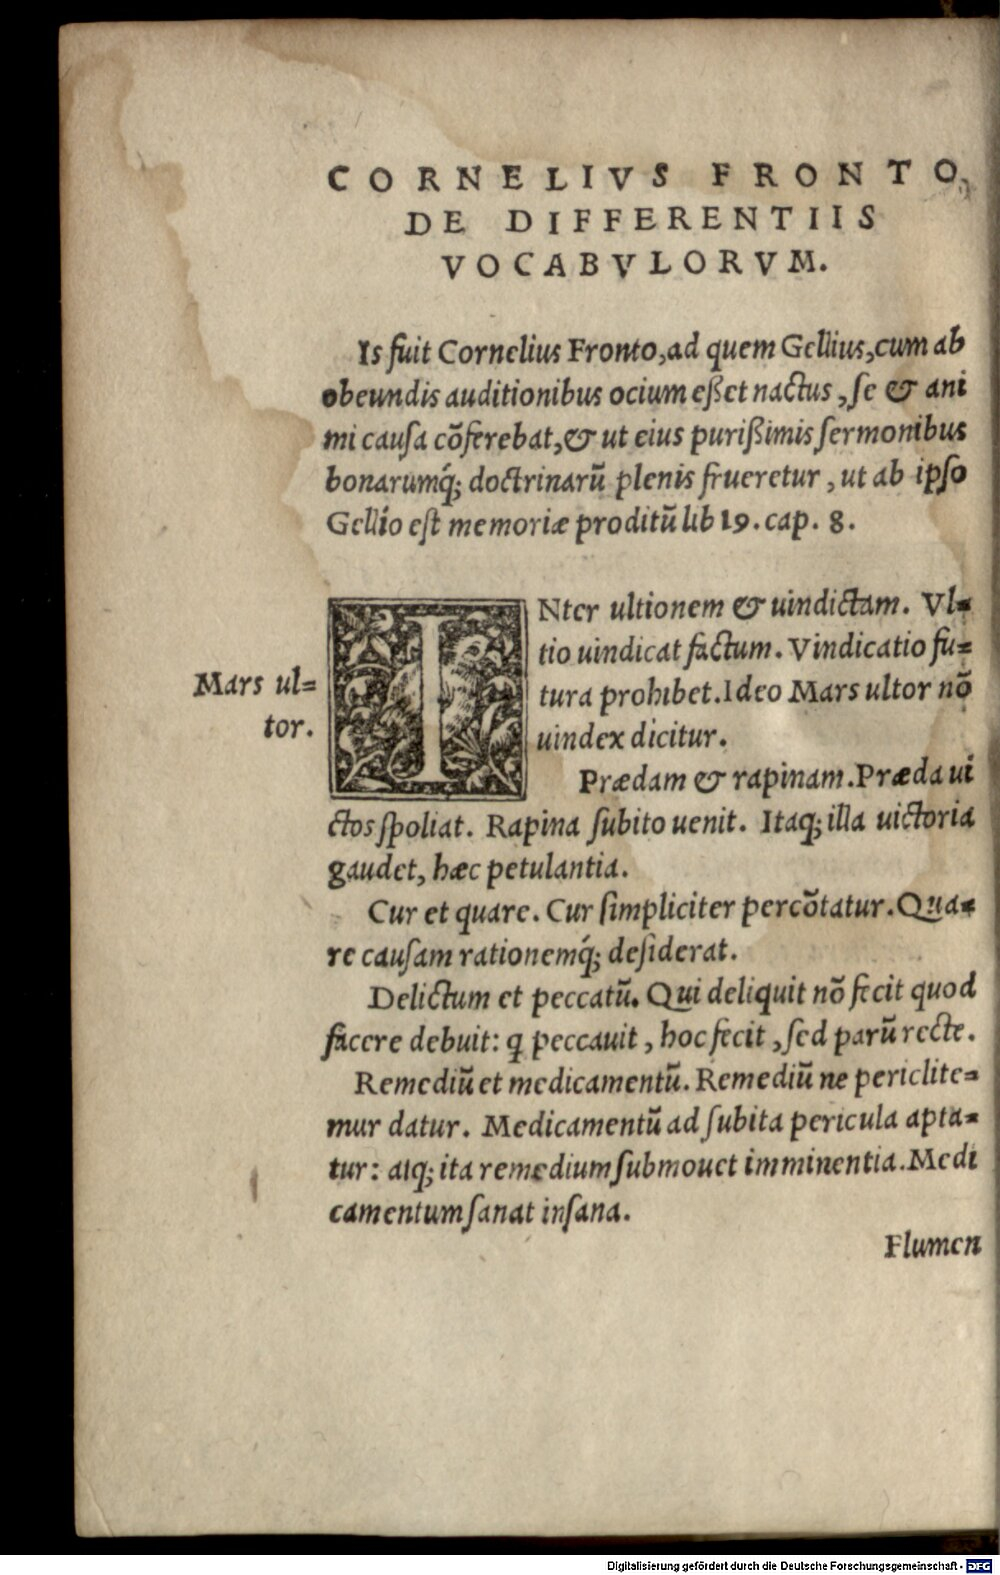 CORNELIVS FRONTO,
DE DIFFERENTIIS
VOCABVLORVM.
Is fuit Cornelius Fronto, ad quem Gellius, cum ab
obeundis auditionibus ocium eßet nactus, ſe & ani
mi cauſa cōferebat, & ut eius purißimis ſermonibus
bonarumq́; doctrinarū plenis frueretur, ut ab ipſo
Gellio eſt memoriæ proditū lib 19. cap. 8.
INter ultionem & uindictam. Vl=
tio uindicat factum. Vindicatio fu=
Mars ul=
tura prohibet. Ideo Mars ultor nō
tor.
uindex dicitur.
Prædam & rapinam. Præda ui
ctos ſpoliat. Rapina ſubito uenit. Itaq; illa uictoria
gaudet, hæc petulantia.
Cur et quare. Cur ſimpliciter percōtatur. Qua=
re cauſam rationemq́; deſiderat.
Delictum et peccatū. Qui deliquit nō fecit quod
facere debuit: q peccauit, hoc fecit, ſed parū recte.
Remediū et medicamentū. Remediū ne periclite=
mur datur. Medicamentū ad ſubita pericula apta=
tur: atq; ita remedium ſubmouet imminentia. Medi
camentum ſanat inſana.
Flumen
Digitalisierung gefördert durch die Deutsche Forschungsgemeinschaft - DFG